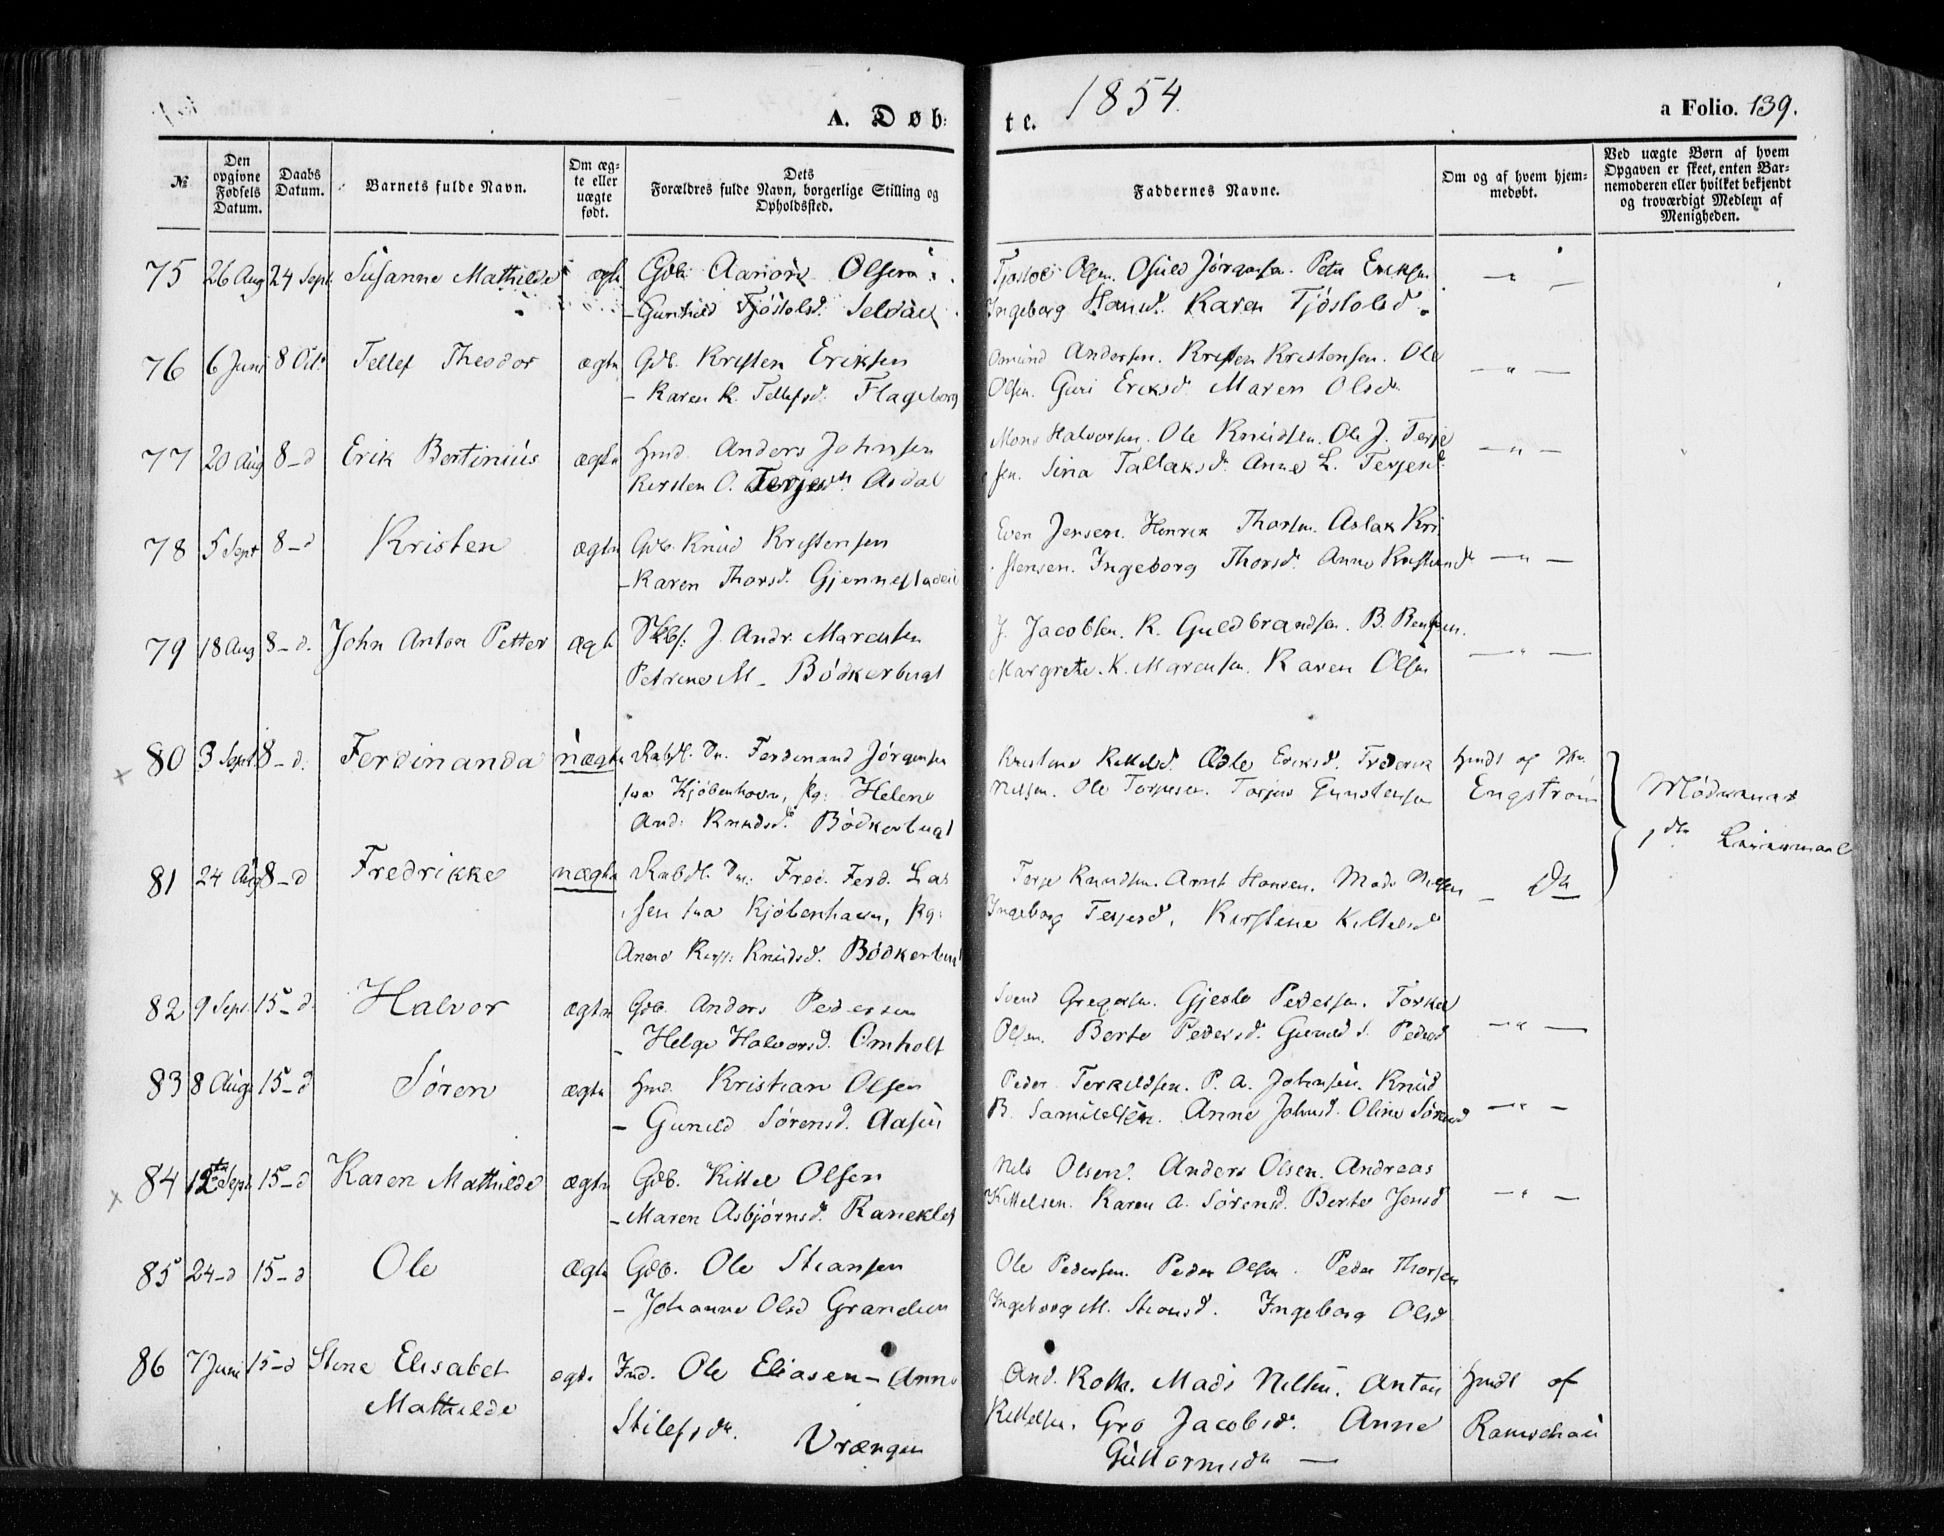 A. Døb-
te.
1854.
a Folio. 139.
№
Den opgivne Fødsels Datum.
Daabs Datum.
Barnets fulde Navn.
Om ægte eller uægte født.
Dets Forældres fulde Navn, borgerlige Stilling og Opholdssted.
Faddernes Navne.
Om og af hvem hjemmedøbt.
Ved uægte Børn af hvem Opgaven er skeet, enten Barnemoderen eller hvilket bekjendt og troværdigt Medlem af Menigheden.
75 26 Aug 24 Sept. Susanne Mathilde ægte Gdb. Aanon Olsen
- Gunhild Tjøstolsd. Selaas
Tjøstol Olsen. Osuld Jørgensen. Peter Eriksen
Ingeborg Hansd. Karen Tjøstolsd.
76 6 Juni 8 Oct. Tellef Theodor ægte Gdb. Kristen Eriksen
- Karen K. Tellefsd. Flageborg
Omund Andersen. Kristen Kristensen. Ole
Olsen. Guri Eriksd. Maren Olsd.
77 20 Aug 8-d Erik Bertinius ægte Hmd. Anders Johnsen
Kirsten O. Terjesd. Asdal
Mons Halvorsen. Ole Knudsen. Ole J. Terje
sen. Sina Tallaksd. Anne L. Terjesd.
78 5 Sept 8-d Kristen ægte Gdb. Knud Kristensen
- Karen Thorsd. Gjennestadeie
Even Jensen. Henrik Thorsen. Aslak Kri
stensen. Ingeborg Thorsd. Anne Kristensd.
79 18 Aug 8-d. John Anton Petter ægte Skbf. J. Andr. Marcusen
Petrine M - Bødkerbugt
J. Jacobsen. K. Guldbrandsen. B. Bentsen.
Margrete. K. Marcusen. Karen Olsen
80 3 Sept. 8-d. Ferdinanda uægte Ferdinand Jørgensen
fra Kjøbenhavn, pg: Helene
And: Knudsd. Bødkerbugt
Kirstine Kittelsd. Edle Eriksd. Frederik
Nilsen. Ole Torjesen. Torjus Gunstensen
hjmdt af
Engstrøm
Mødrenes
81 24 Aug 8-d Fredrikke uægte Fred. Ferd. Las
sen fra Kjøbenhavn, pg:
Anne Kirst: Knudsd. Bødkerbugt
Terje Knudsen. Arnt Hansen. Mads Nilsen
Ingeborg Terjesd. Kirstine Kittelsd
- Do
82 9 Sept. 15-d. Halvor ægte Gdb. Anders Pedersen
- Helge Halvorsd. Omholt
Svend Gregersen. Gjeslo Pedersen. Torkel
Olsen. Berte Pedersd. Gunild S. Pedersd
83 8 Aug. 15-d Søren ægte Hmd. Kristian Olsen
- Gunild Sørensd. Aasen
Peder Terkildsen. P. A. Johnsen. Knud
B. Samuelsen. Anne Johnsd. Oline Sørensd
84 12te Sept 15-d Karen Mathilde ægte Gdb. Kittel Olsen
- Maren Asbjørnsd. Raneklev
Nils Olsen. Anders Olsen. Andreas
Kittelsen. Karen A. Sørensd. Berte Jensd
85 24-d 15-d Ole ægte Gdb. Ole Stiansen
- Johanne Olsd Grandeen
Ole Pedersen. Peder Olsen. Peder Thorsen
Ingeborg M. Stiansd. Ingeborg Olsd
86 7 Juni 15-d Stine Elisabet
Mathilde
ægte Ind. Ole Eliasen - Anne
Stilefsdr. Vrængen
And. Roth. Mads Nilsen. Anton
Kittelsen. Gro Jacobsd. Anne
Guttormsd. -
hjmdt af